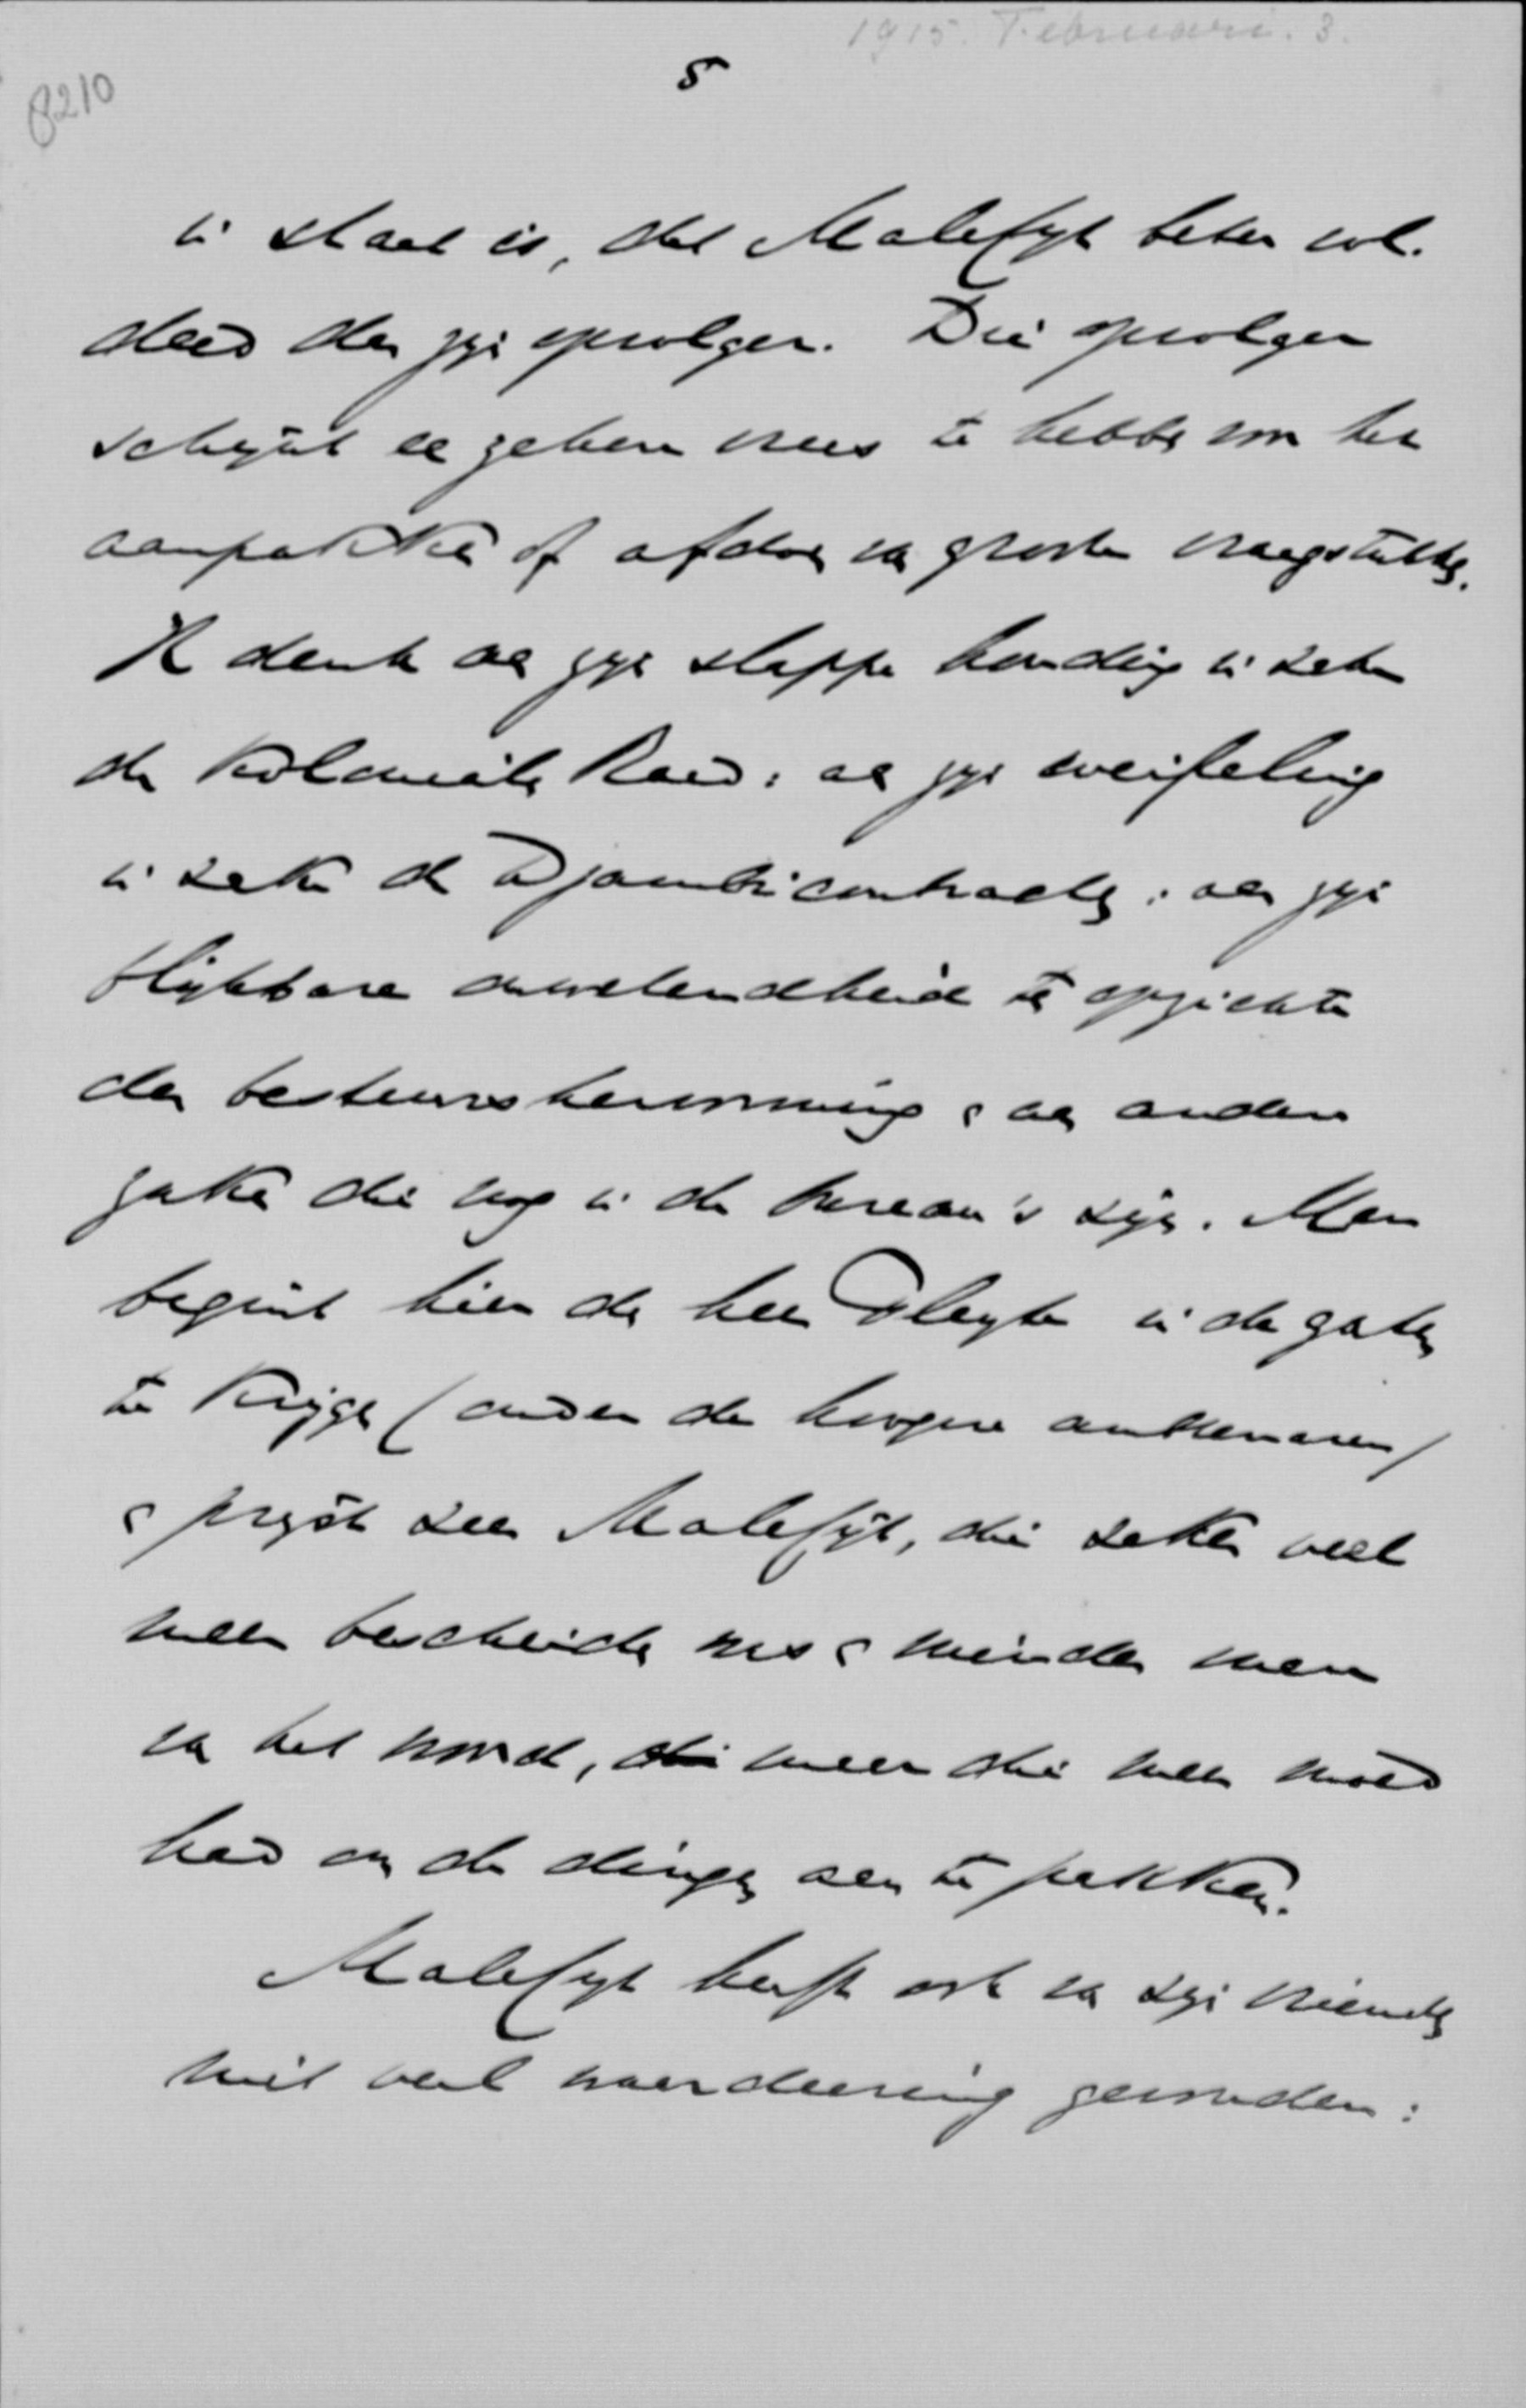 1915. Februari. 3.
5
8210
in staat is, dat Malefijt beter vol-
deed dan zijn opvolger. Die opvolger
schijnt een geheim vrees te hebben voor het
aanpakken of afdoen van groote vraagstukken.
Ik denk aan zijn slappe houding in zake
de Koloniale Raad: aan zijn weifeling
in zake de Djambicontracten: aan zijn
blijkbare onwetendheid ten opzichte
der bestuurshervorming & aan andere
zaken die nog in de bureau's zijn. Men
begint hier den heer Pleyte in de gaten
te krijgen (onder de hoogere ambtenaren)
& prijst zeer Malefijt, die zeker veel
meer bescheiden was & minder man
van het woord, die meer die meer moed
had om de dingen aan te pakken.
Malefijt heeft ook van zijn vrienden
niet veel waardeering gevonden: